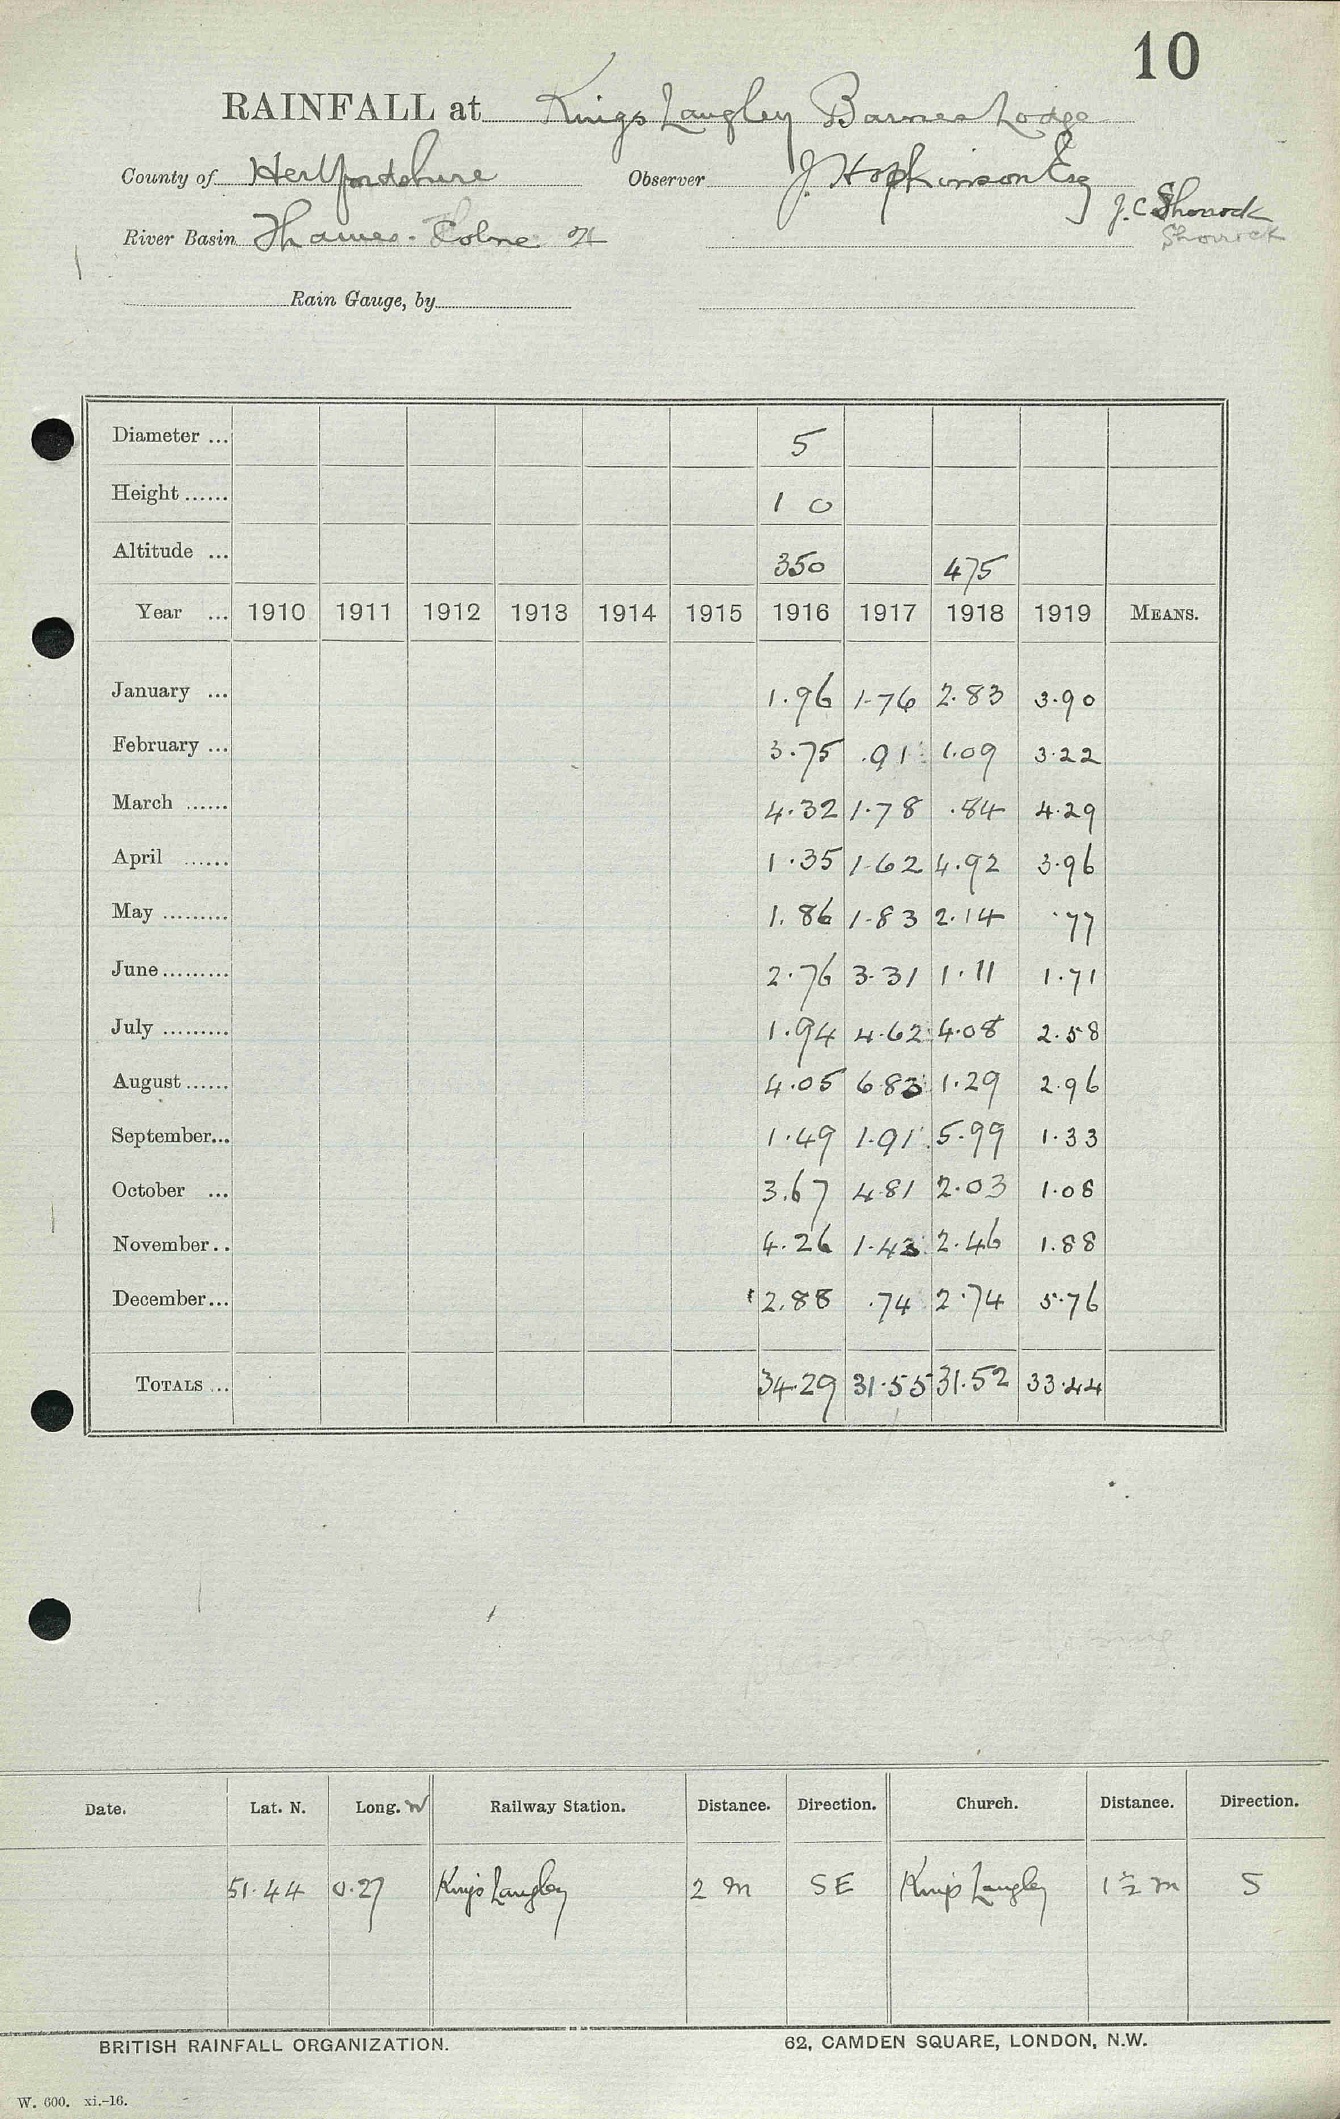 10
RAINFALL at Kings Langley Barnes Lodge
County of Hertfordshire Observer J. Hopkinson Esq
J. C. Shorrock
River Basin Thames - Colne
Shorrock
Rain Gauge, by
Diameter ... 5
Height ...... 1 0
Altitude ... 350 475
Year ... 1910 1911 1912 1913 1914 1915 1916 1917 1918 1919 MEANS.
January ... 1.96 1.76 2.83 3.90
February ... 3.75 .91 1.09 3.22
March ...... 4.32 1.78 .84 4.29
April ...... 1.35 1.62 4.92 3.96
May ......... 1.86 1.83 2.14 .77
June ......... 2.76 3.31 1.11 1.71
July ......... 1.94 4.62 4.08 2.58
August ...... 4.05 6.83 1.29 2.96
September... 1.49 1.91 5.99 1.33
October ... 3.67 4.81 2.03 1.08
November.. 4.26 1.43 2.46 1.88
December... 2.88 .74 2.74 5.76
TOTALS ... 34.29 31.55 31.52 33.44
Date. Lat. N. Long. W Railway Station. Distance. Direction. Church. Distance. Direction.
51.44 0.27 Kings Langley 2 m SE Kings Langley 1½ m S
BRITISH RAINFALL ORGANIZATION. 62, CAMDEN SQUARE, LONDON, N.W.
W. 600. xi.-16.